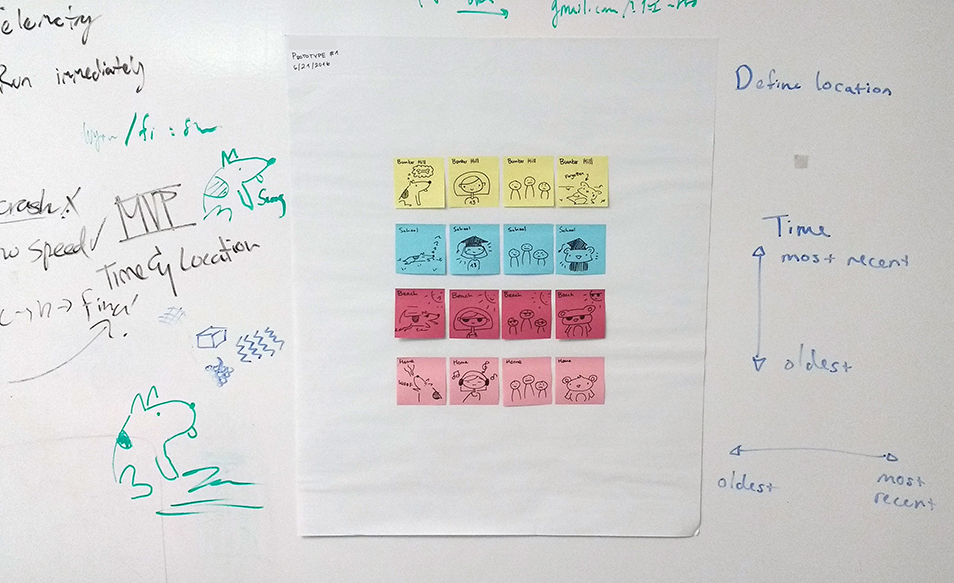 Telemetry
Run immediately
gmail.com
crash X
no speed ✓
MVP
Time & Location
PROTOTYPE #1
6/21/2016
Bunker Hill
Bunker Hill
Bunker Hill
Bunker Hill
School
School
School
School
Beach
Beach
Beach
Beach
Home
Home
Home
Home
Define location
Time
most recent
oldest
oldest
most
recent